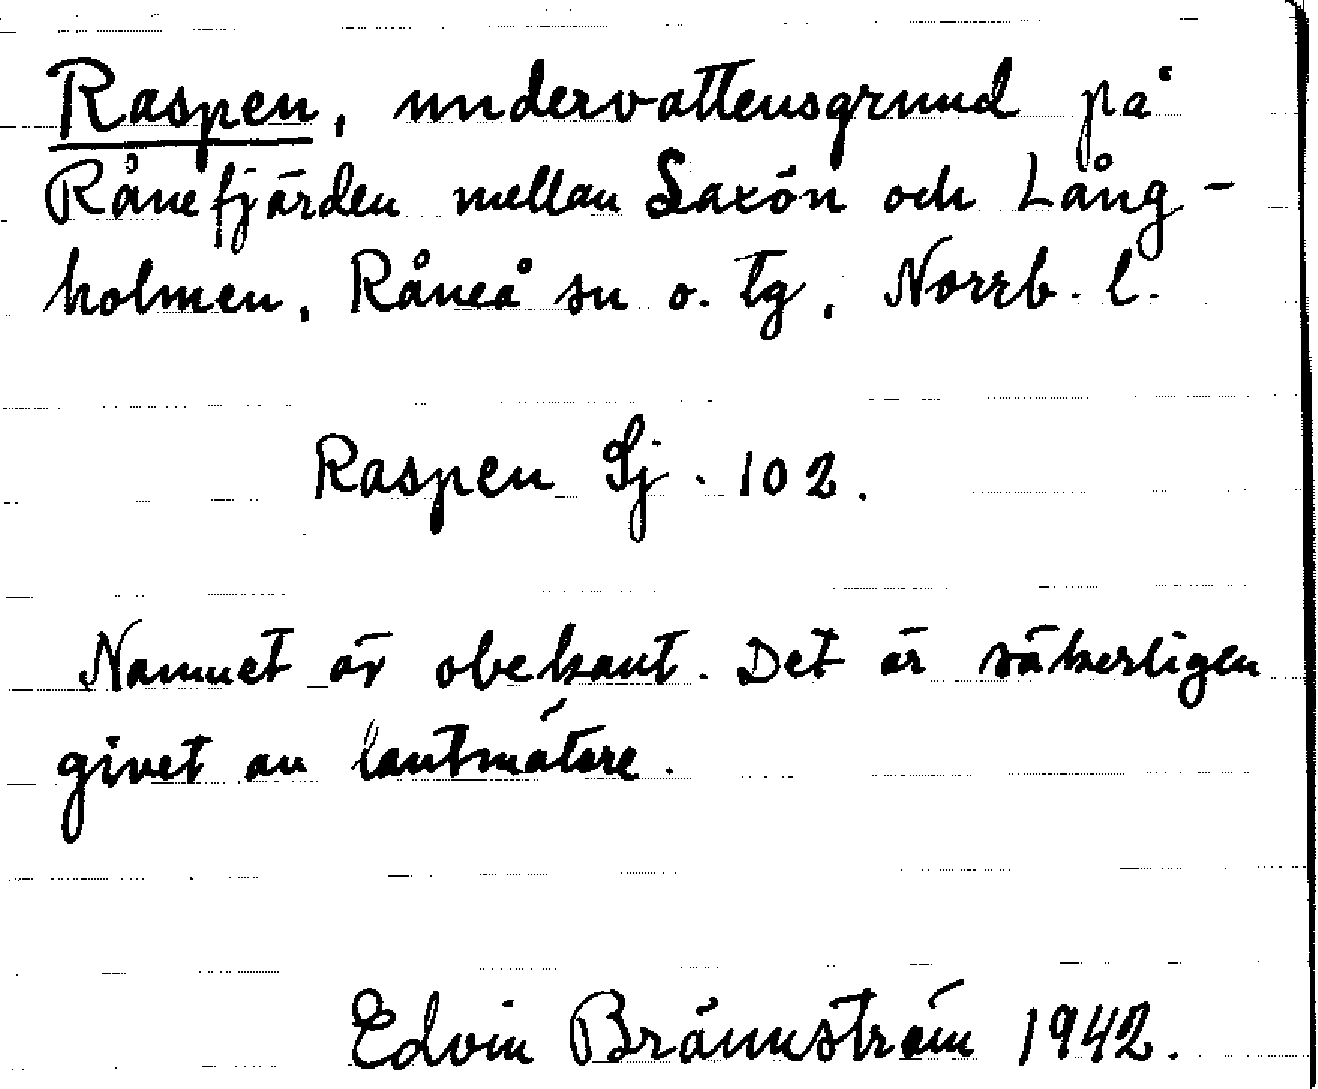 Raspen, undervattensgrund på
Rånefjärden mellan Saxön och Lång-
holmen, Råneå sn o. tg, Norrb. l.
Raspen Sj. 102.
Namnet är obekant. Det är säkerligen
givet av lantmätare.
Edvin Brännström 1942.